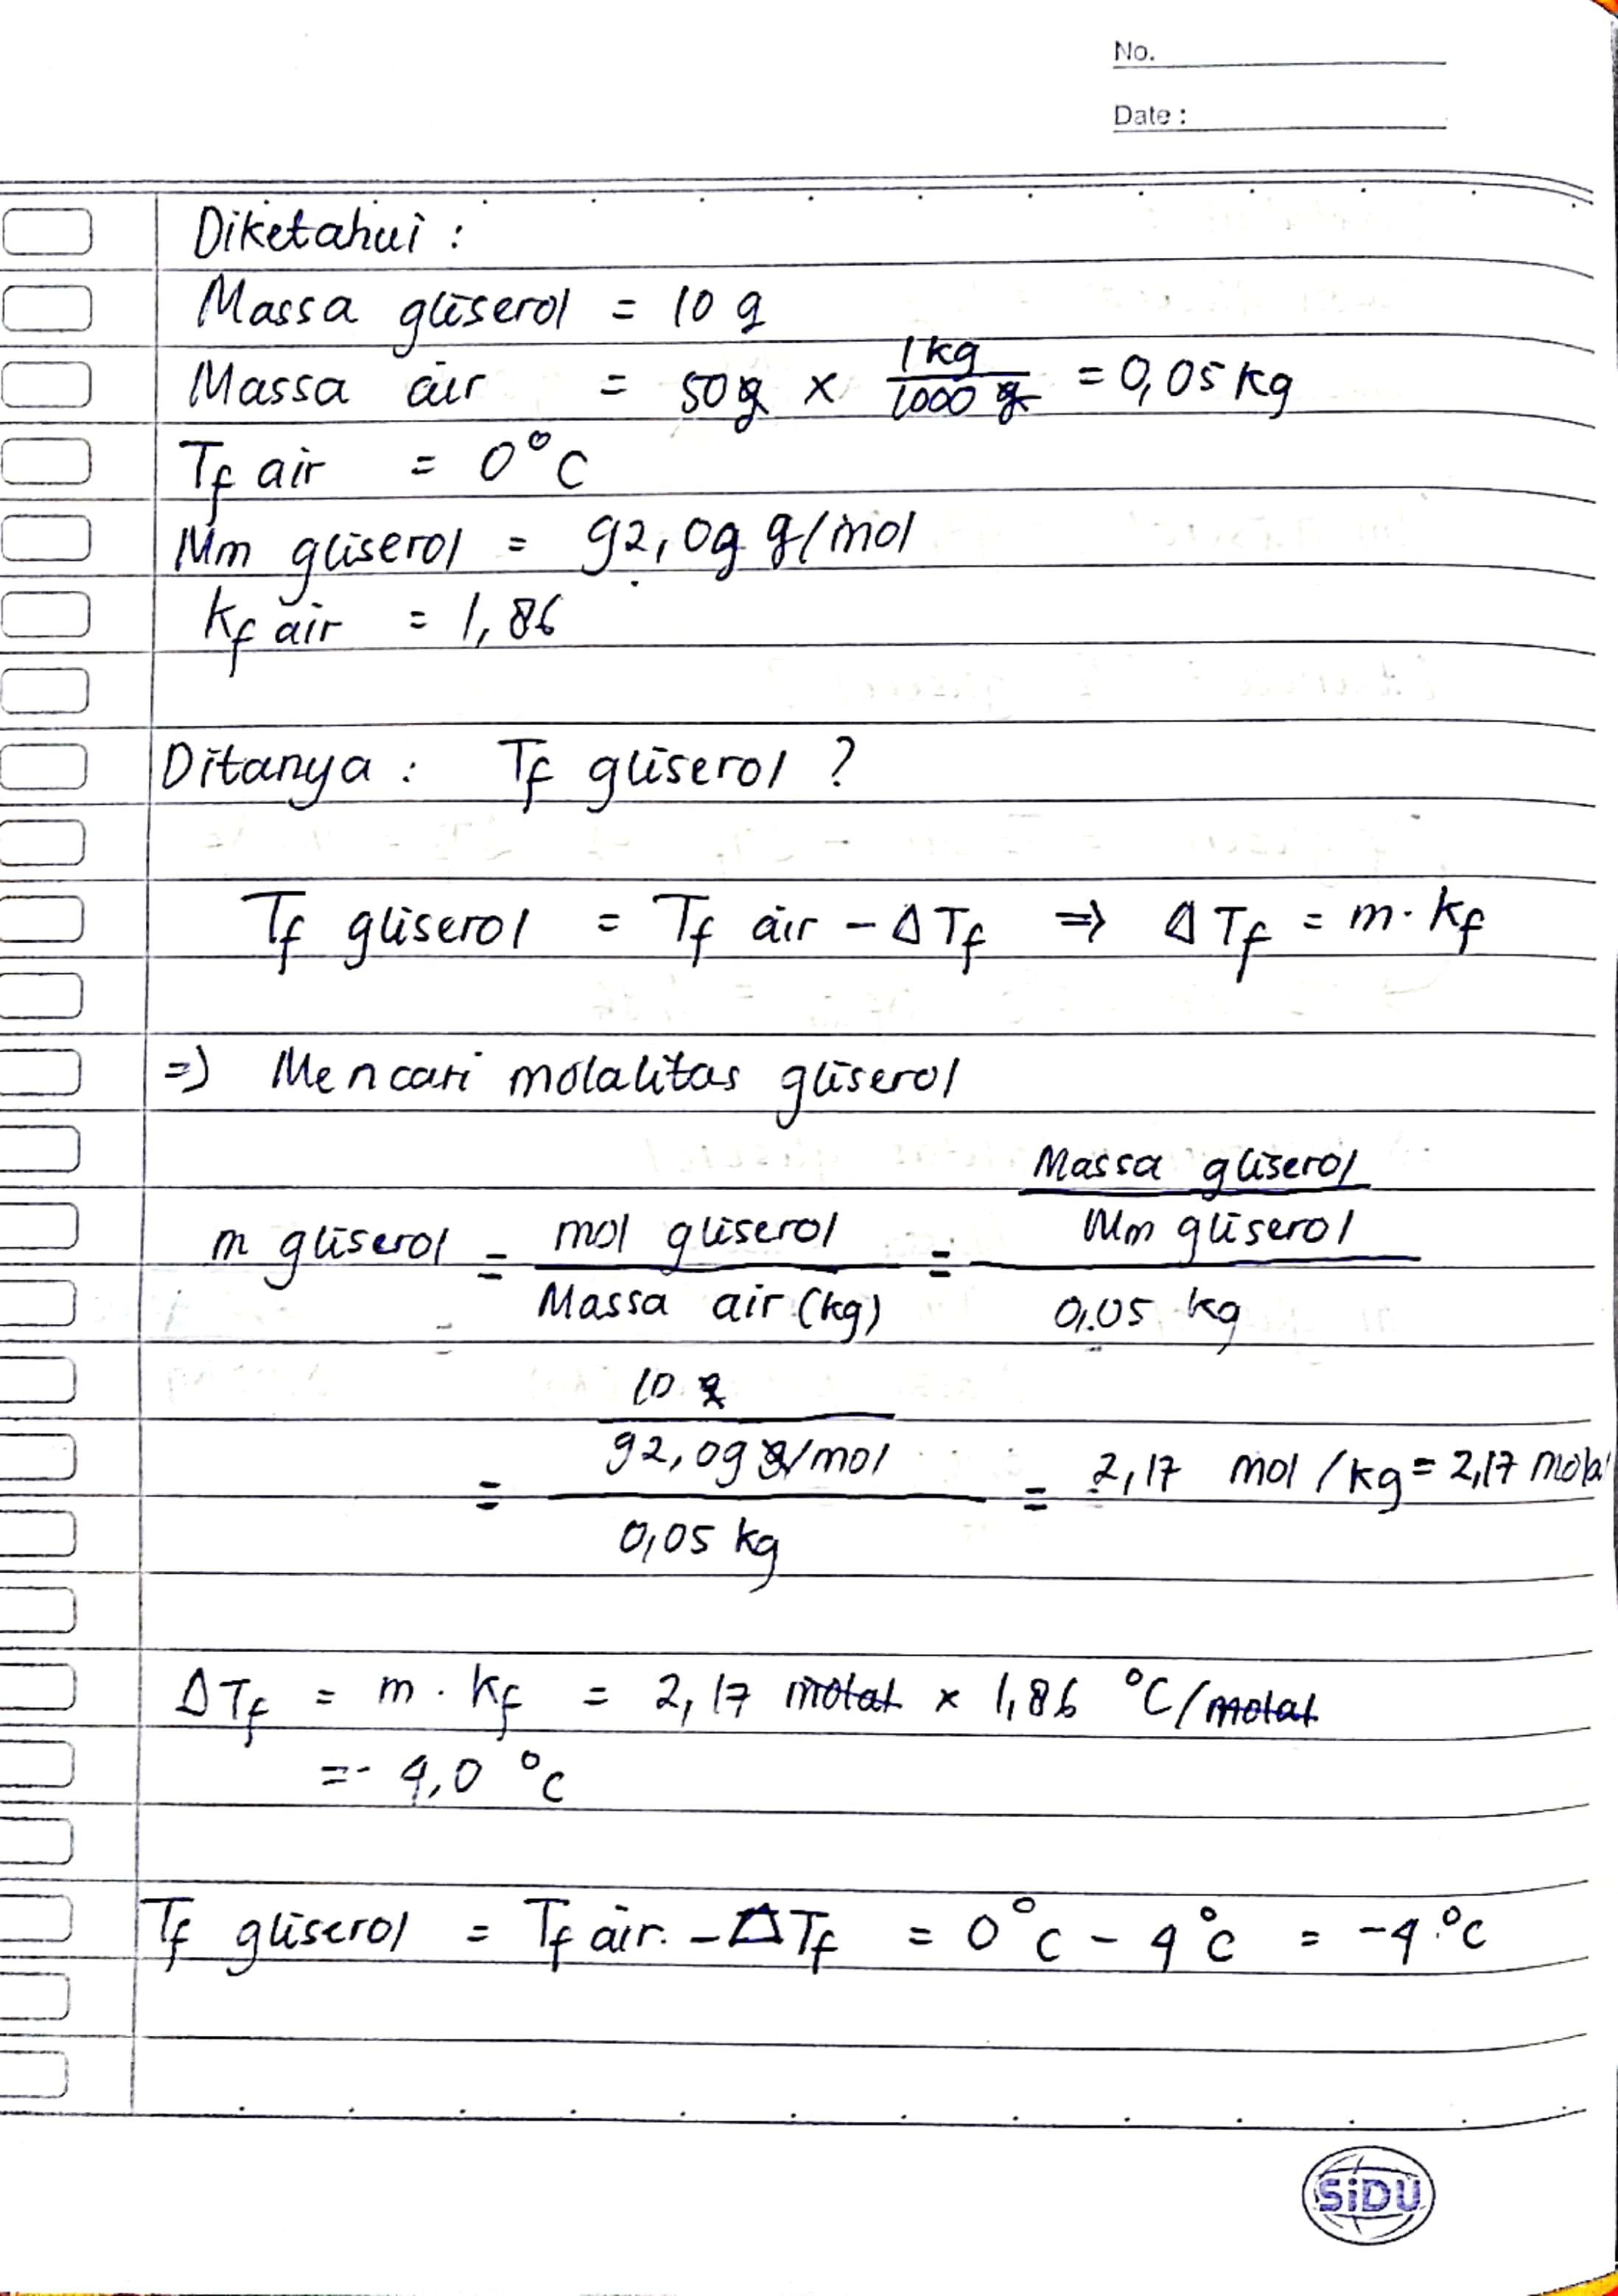 No.
Date :
Diketahui :
Massa gliserol = 10 g
Massa air = 50 g × 1 kg / 1000 g = 0,05 kg
Tf air = 0°C
Mm gliserol = 92,09 g/mol
Kf air = 1,86
Ditanya : Tf gliserol ?
Tf gliserol = Tf air – ΔTf ⇒ ΔTf = m · Kf
=> Mencari molalitas gliserol
Massa gliserol
m gliserol = mol gliserol = Mm gliserol
Massa air (kg) 0,05 kg
10 g
92,09 g/mol
= = 2,17 mol /kg = 2,17 molal
0,05 kg
ΔTf = m · Kf = 2,17 molal × 1,86 °C/molal
=- 4,0 °C
Tf gliserol = Tf air. – ΔTf = 0°C – 4°C = -4.°C
SiDU